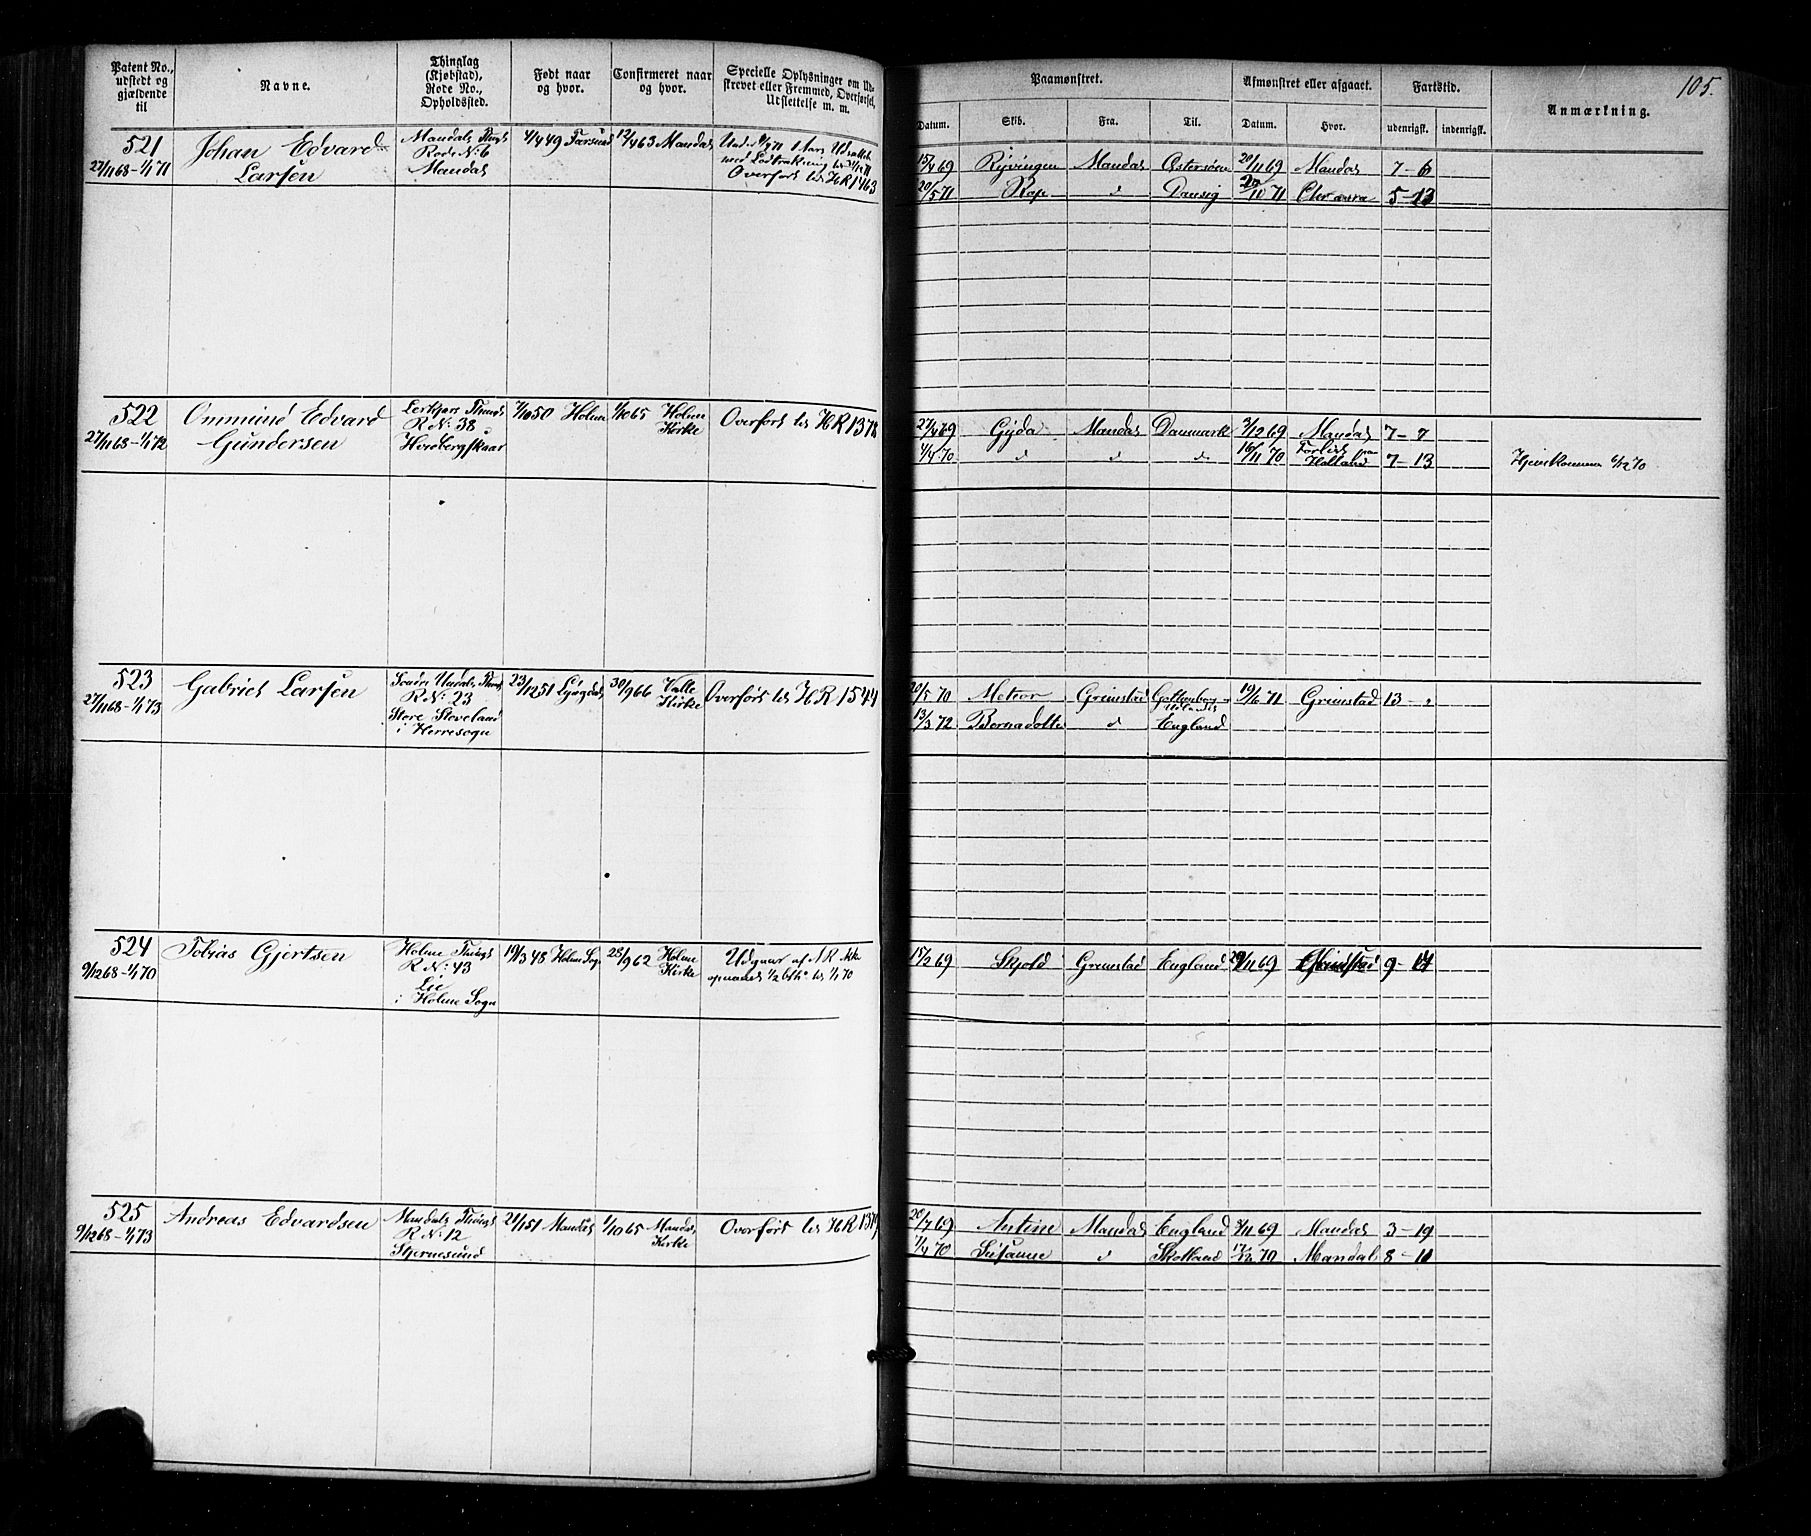 105.
Patent No., udstedt og gjældende til
Navne.
Thinglag (Kjøbstad), Rode No., Opholdssted.
Født naar og hvor.
Confirmeret naar og hvor.
Specielle Oplysninger om Udskrevet eller Fremmed, Overførsel, Udslettelse m. m.
Paamønstret.
Afmønstret eller afgaaet.
Fartstid.
Anmærkning.
Datum.
Skib.
Fra.
Til.
Datum.
Hvor.
udenrigsk.
indenrigsk.
521
27/11 68 - 1/1 71
Johan Edvard
Larsen
Mandals Thingl
Rode No 6
Mandal
4/4 49 Farsund
12/4 63 Mandal
med Lodtrækning
Overført til HR 1463
15/4 69 Ryvingen Mandal Østersøen 20/11 69 Mandal 7 - 6
20/5 71 Kap d Danzig 10 71 5 - 13
522
27/11 68 - 1/1 72
Ommund Edvard
Gundersen
R No: 38
7/10 50 Holme
1/10 65 Holme
Kirke
Overført til HR 1378
27/4 69 Gyda Mandal Danmark 3/12 69 Mandal 7 - 7
4/4 70 d d d 16/11 70 Forlist
Holland 7 - 13
Hjemkommen 6/12 70
523
27/11 68 - 1/1 73
Gabriel Larsen
Søndre Undals Thingl
R No: 23
Store Stoveland
i Herresogn
23/12 51 Lyngdal
30/9 66 Valle
Kirke
Overført til HR 1544
20/5 70 Meteor Grimstad Gottenborg 19/6 71 Grimstad 13 - "
13/3 72 Bernadotte d England
524
9/12 68 - 1/1 70
Tobias Gjertsen
Holme Thingl
R No: 43
Lie
i Holme Sogn
19/3 48 Holme Sogn
28/9 62 Holme
Kirke
Udgaar af NR ikke
15/2 69 Skjold Grimstad England 29/11 69 Grimstad 9 - 14
525
9/12 68 - 1/1 73
Andreas Edvardsen
Mandals Thingl
R No: 12
Stjernesund
21/1 51 Mandal
1/10 65 Mandal
Kirke
Overført til HR 1379
28/7 69 Antine Mandal England 9/11 69 Mandal 3 - 19
7/4 70 Susanne d Skotland 17/12 70 Mandal 8 - 11